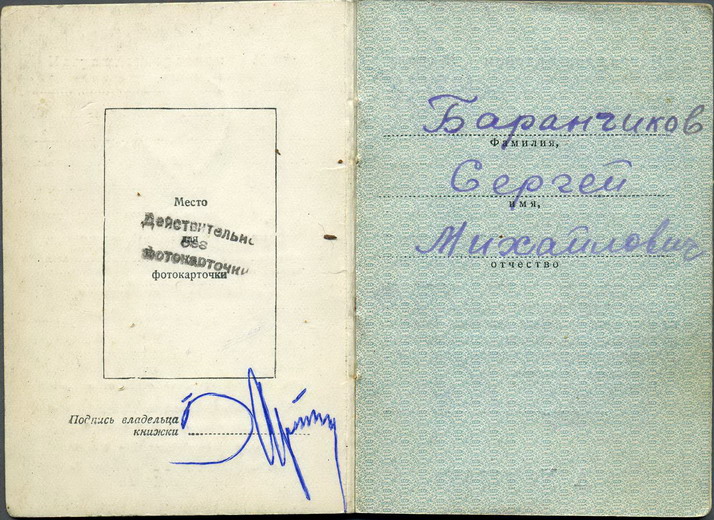 Место
для
фотокарточки
Действительно
без
фотокарточки
Подпись владельца
книжки
Баранчиков
Фамилия,
Сергей
имя,
Михайлович
отчество